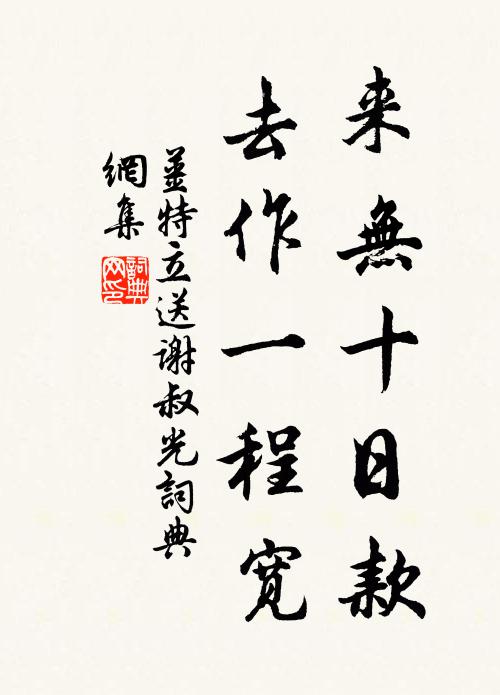 来無十日款
去作一程寛
姜特立送谢叔光詞典
網集
詞典
网印